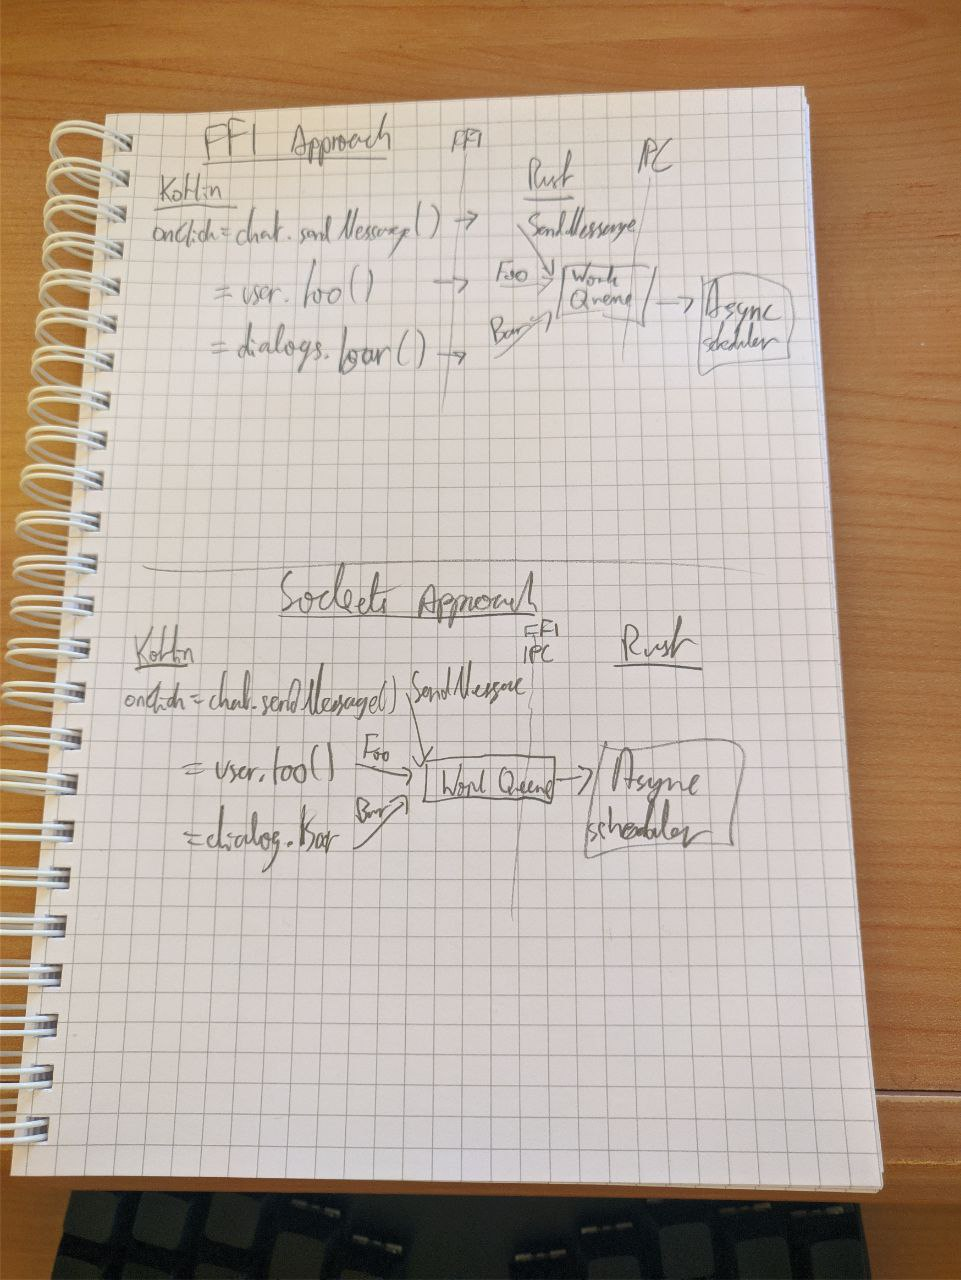 FFI Approach
FFI
IPC
Kotlin
Rust
onClick = chat.sendMessage() →
SendMessage
= user.foo() →
Foo
Work
Queue
→
Async
scheduler
= dialogs.bar() →
Bar
Sockets Approach
FFI
IPC
Kotlin
Rust
onClick = chat.sendMessage()
SendMessage
= user.foo()
Foo
Work Queue
→
Async
scheduler
= dialog.Bar
Bar